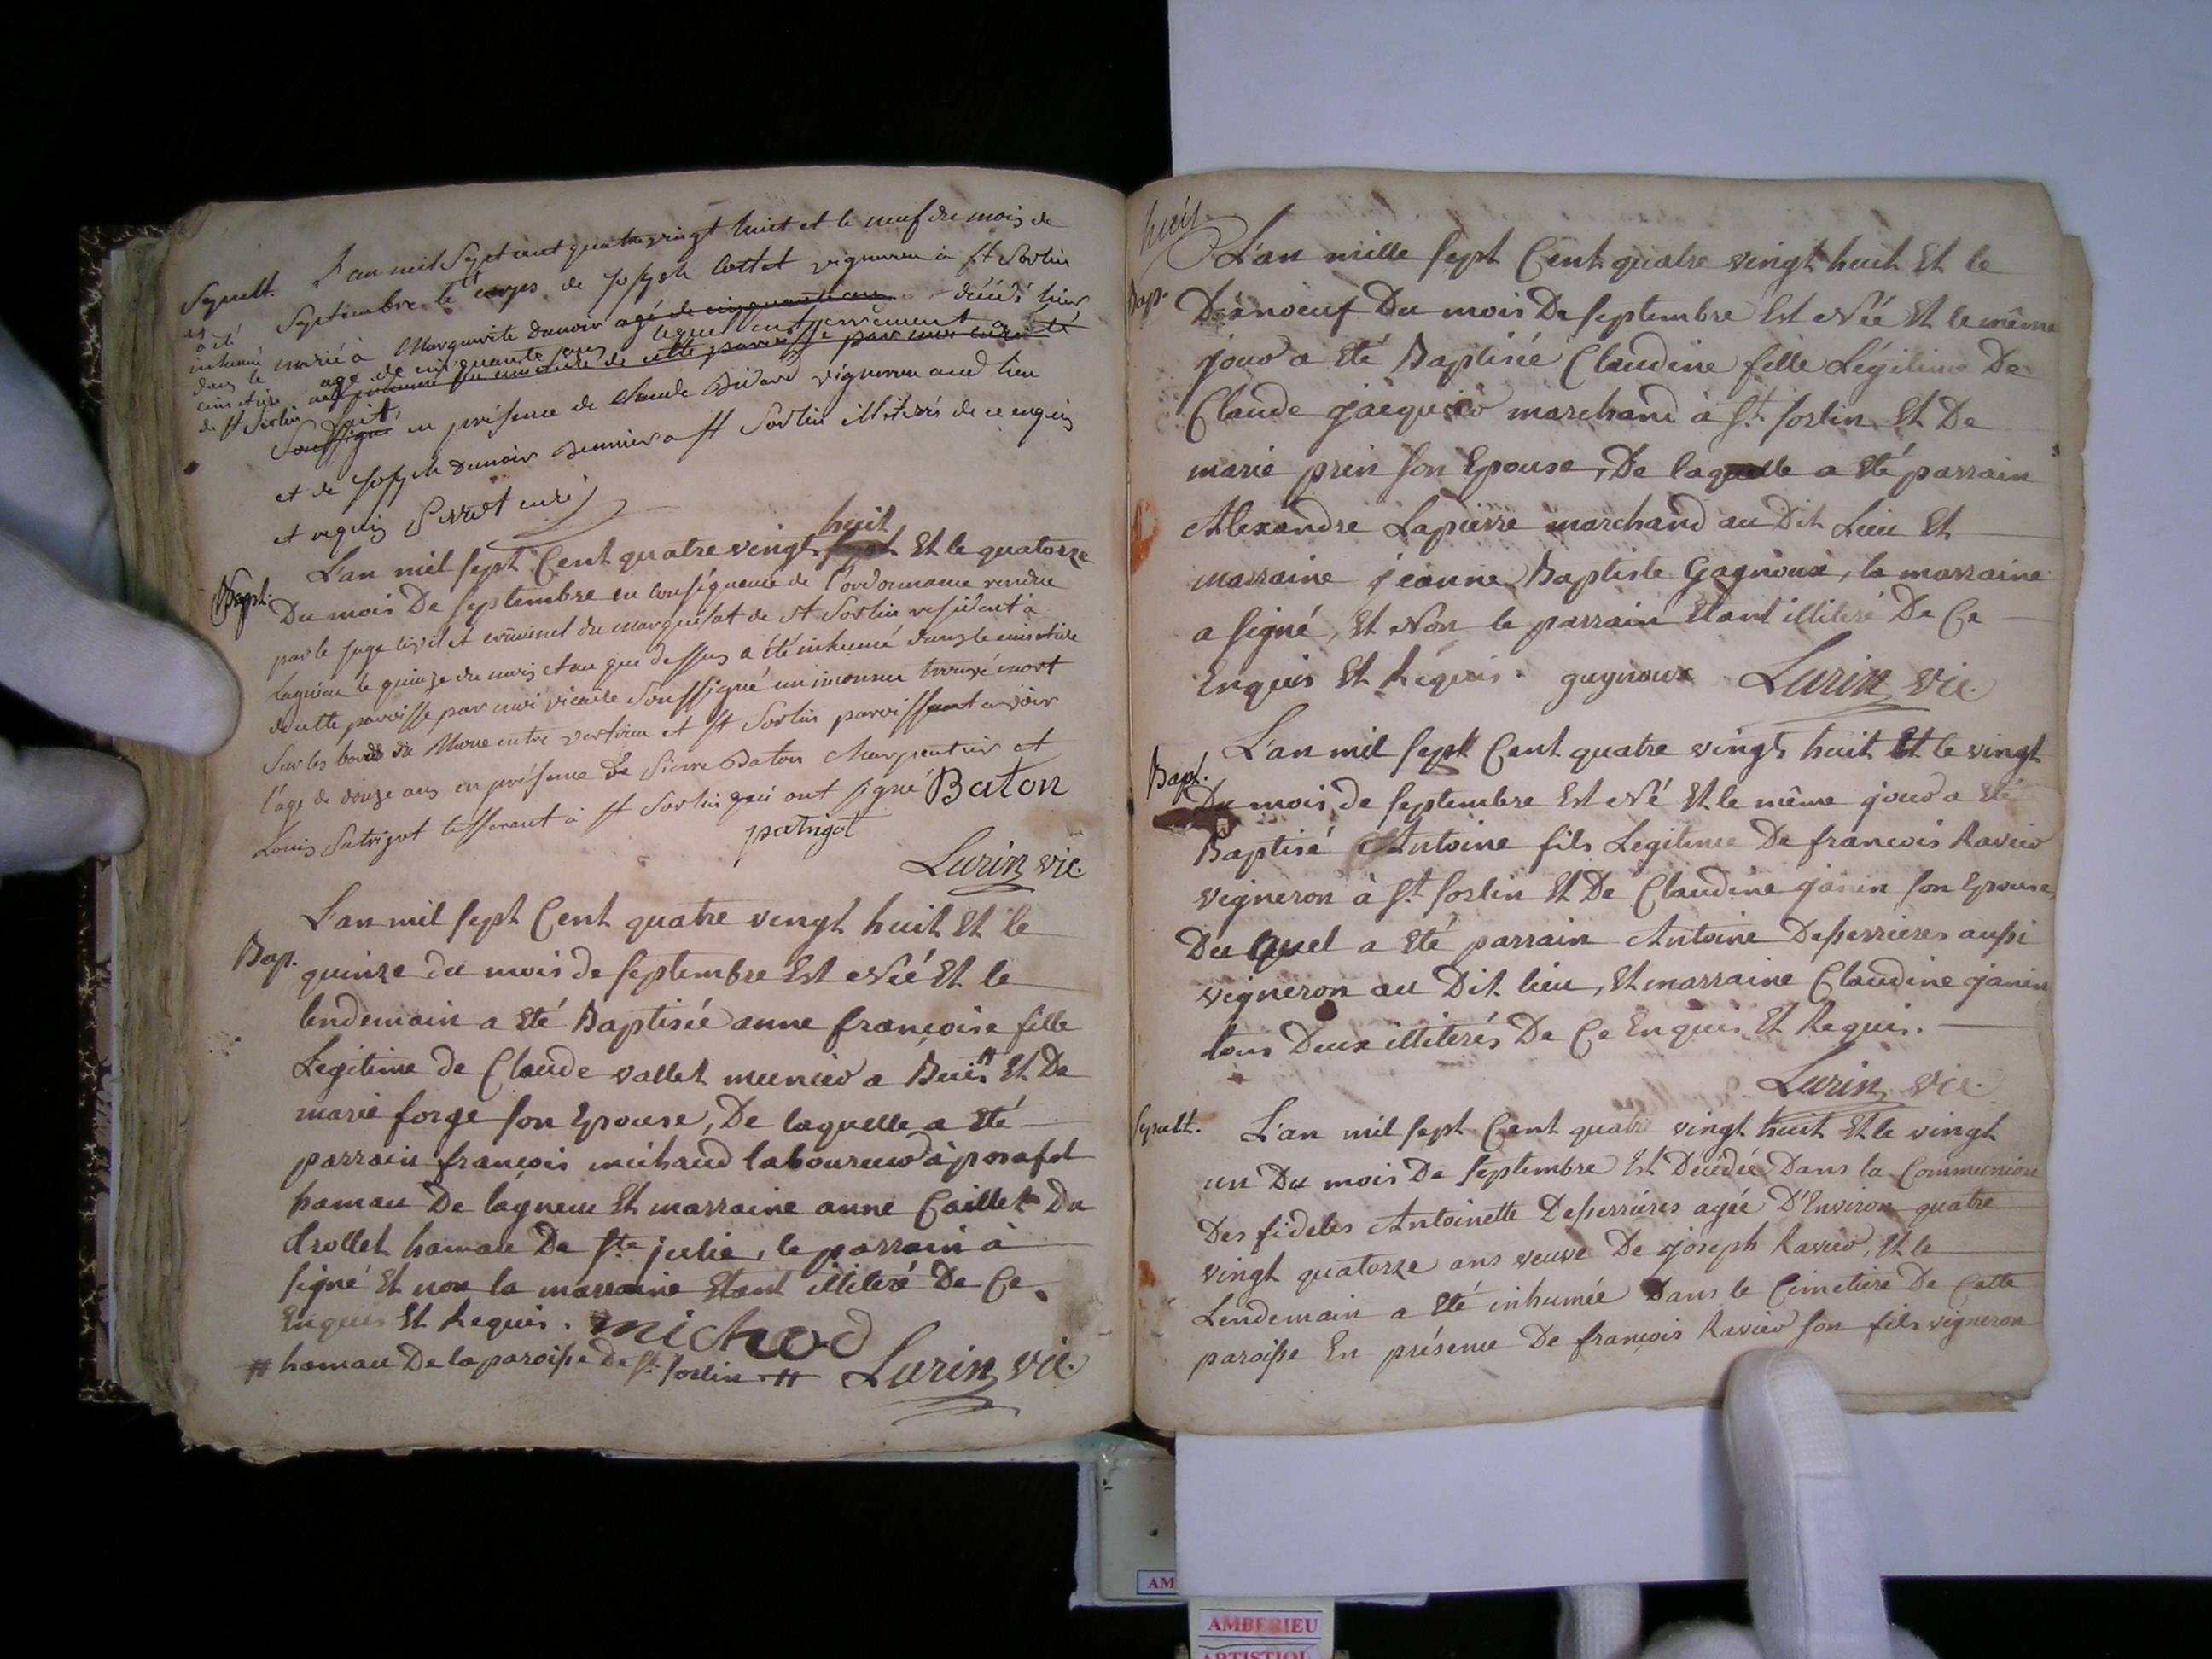 Sepult. L'an mil Sept cent quatre vingt huit et le neuf du mois de
Septembre le corps de joseph Cottet vigneron à St Sorlin
marié à Marguerite Dunoir agé de cinquante ans décédé hier
agé de cinquante ans
inhumé au cimetiere de cette paroisse par moi curé
a été
inhumé
dans le
cimetiere
de St Sorlin
Soussigné fait en présence de Claude vigneron aud lieu
et de joseph Dunoir a St Sorlin illitérés de ce enquis
et requis Perret curé
huit
L'an mil sept Cent quatre vingt sept Et le quatorze
Bapt. Du mois De septembre en conséquence de l'ordonnance rendue
par le juge civil et criminel du marquisat de St Sorlin résident à
Lagnieu le quinze du mois et an que dessus a été inhumé dans le cimetiere
de cette paroisse par moi vicaire soussigné un inconnu trouvé mort
Sur les bords du Rhone entre vertrieu et St Sorlin paroissant avoir
l'age de douze ans en présence De Pierre Baton charpentier et
Louis Patrigot tisserant à St Sorlin qui ont signé Baton
patrigot
Lurin vic.
L'an mil sept Cent quatre vingt huit Et le
Bap. quinze du mois de septembre Est Née Et le
lendemain a Eté Baptisée anne françoise fille
Legitime de Claude vallet meunier a # Et De
marie forge son Epouse, De laquelle a Eté
parrain françois michaud laboureur à posafol
hamau De lagneu Et marraine anne Caillet Du
trollet hamau De Ste julie, le parrain à
signé Et non la marraine Etant illiteré De Ce
Enquis Et Requis. michod
# hamau De la paroisse De St Sorlin # Lurin vic.
huit
L'an mille sept Cent quatre vingt huit Et le
Bap. Dixnoeuf Du mois De septembre Est Née Et le même
jour a Eté Baptisée Claudine fille Légitime De
Claude jacquier marchand à St sorlin Et De
marie prin son Epouse, De laquelle a Eté parrain
Alexandre Lapierre marchand au Dit Lieu Et
marraine jeanne Baptiste Gagnoux, la marraine
a signé, Et Non le parrain Etant illiteré De Ce
Enquis Et Réquis. gagnoux Lurin vic.
L'an mil sept Cent quatre vingt huit Et le vingt
Bapt. Du mois de septembre Est Né Et le même jour a Eté
Baptisé Antoine fils Legitime De francois Ravier
vigneron à St sorlin Et De Claudine janin son Epouse,
Du quel a Eté parrain Antoine Desserrieres aussi
vigneron au Dit lieu, Et marraine Claudine janin
tous Deux illiterés De Ce Enquis Et Requis.
Lurin vic.
Sepult. L'an mil sept Cent quatre vingt huit Et le vingt
un Du mois De septembre Est Décédée Dans la Communion
Des fideles Antoinette Desserrieres agée D'Environ quatre
vingt quatorze ans veuve De joseph Ravier, Et le
Lendemain a Eté inhumée Dans le Cimetiere De Cette
paroisse En présence De françois Ravier son fils vigneron
AMBERIEU